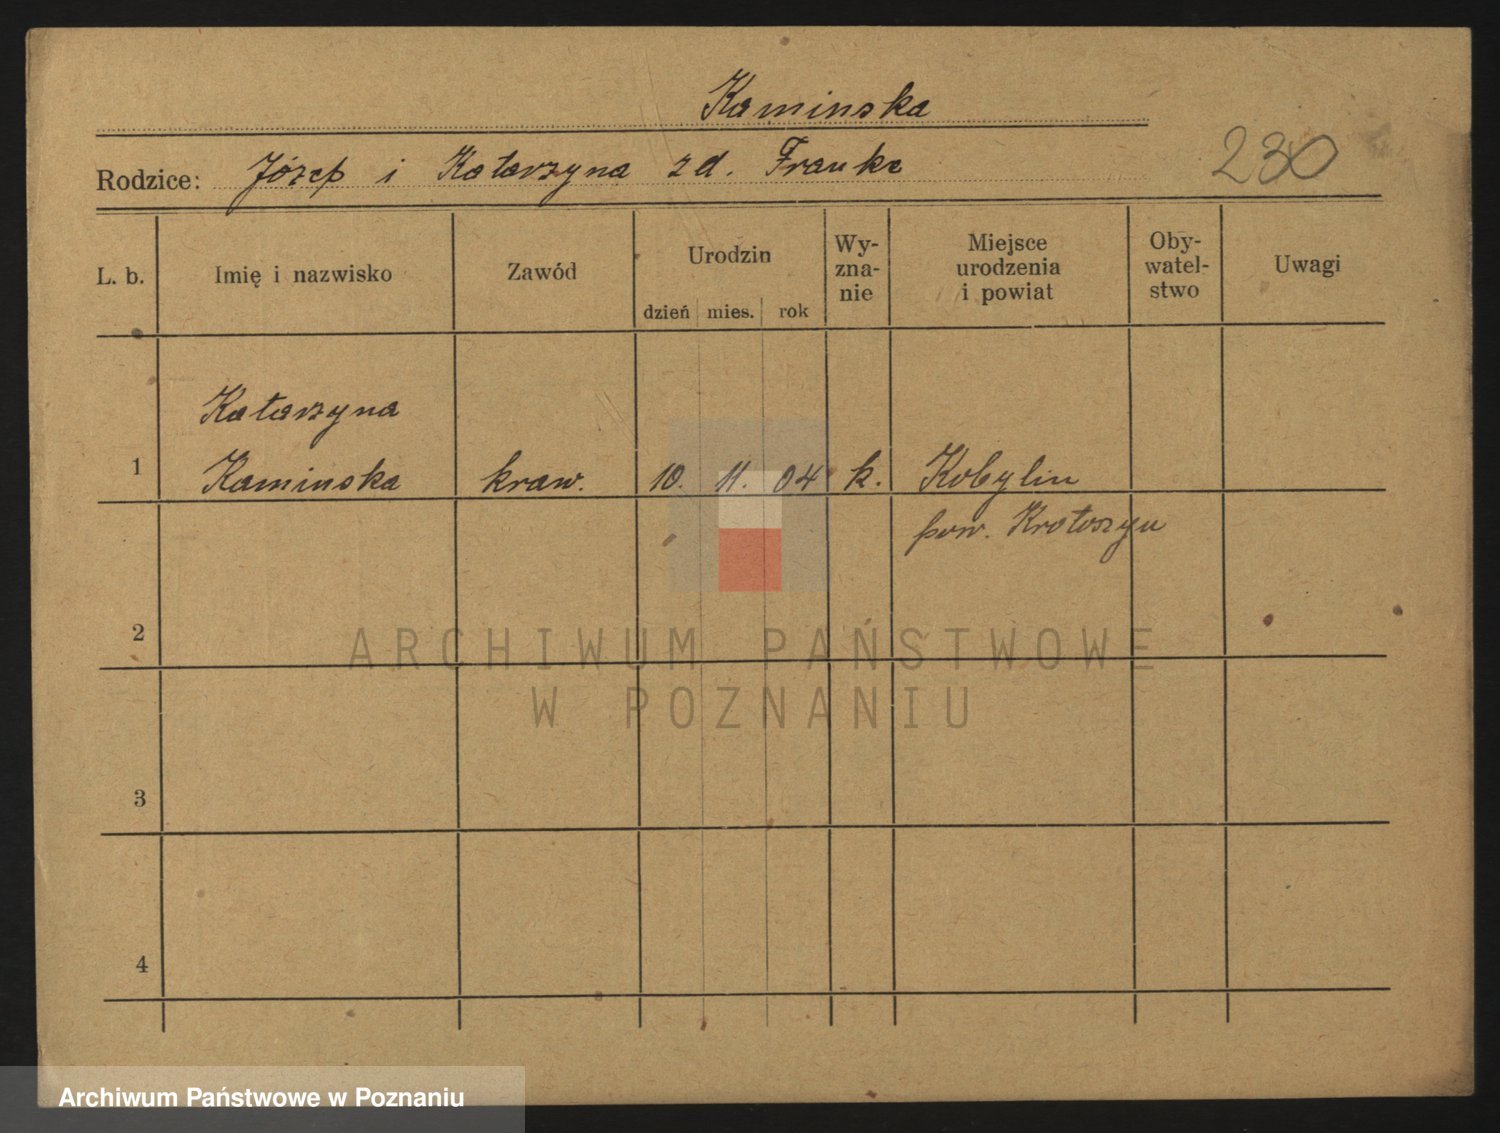 Kaminska
Rodzice: Józef i Katarzyna zd. Franke
230
L. b.
Imię i nazwisko
Zawód
Urodzin
dzień mies. rok
Wy-
zna-
nie
Miejsce
urodzenia
i powiat
Oby-
watel-
stwo
Uwagi
Katarzyna
1 Kaminska kraw. 10. 11. 04 k. Kobylin
pow. Krotoszyn
2
ARCHIWUM PAŃSTWOWE
W POZNANIU
3
4
Archiwum Państwowe w Poznaniu